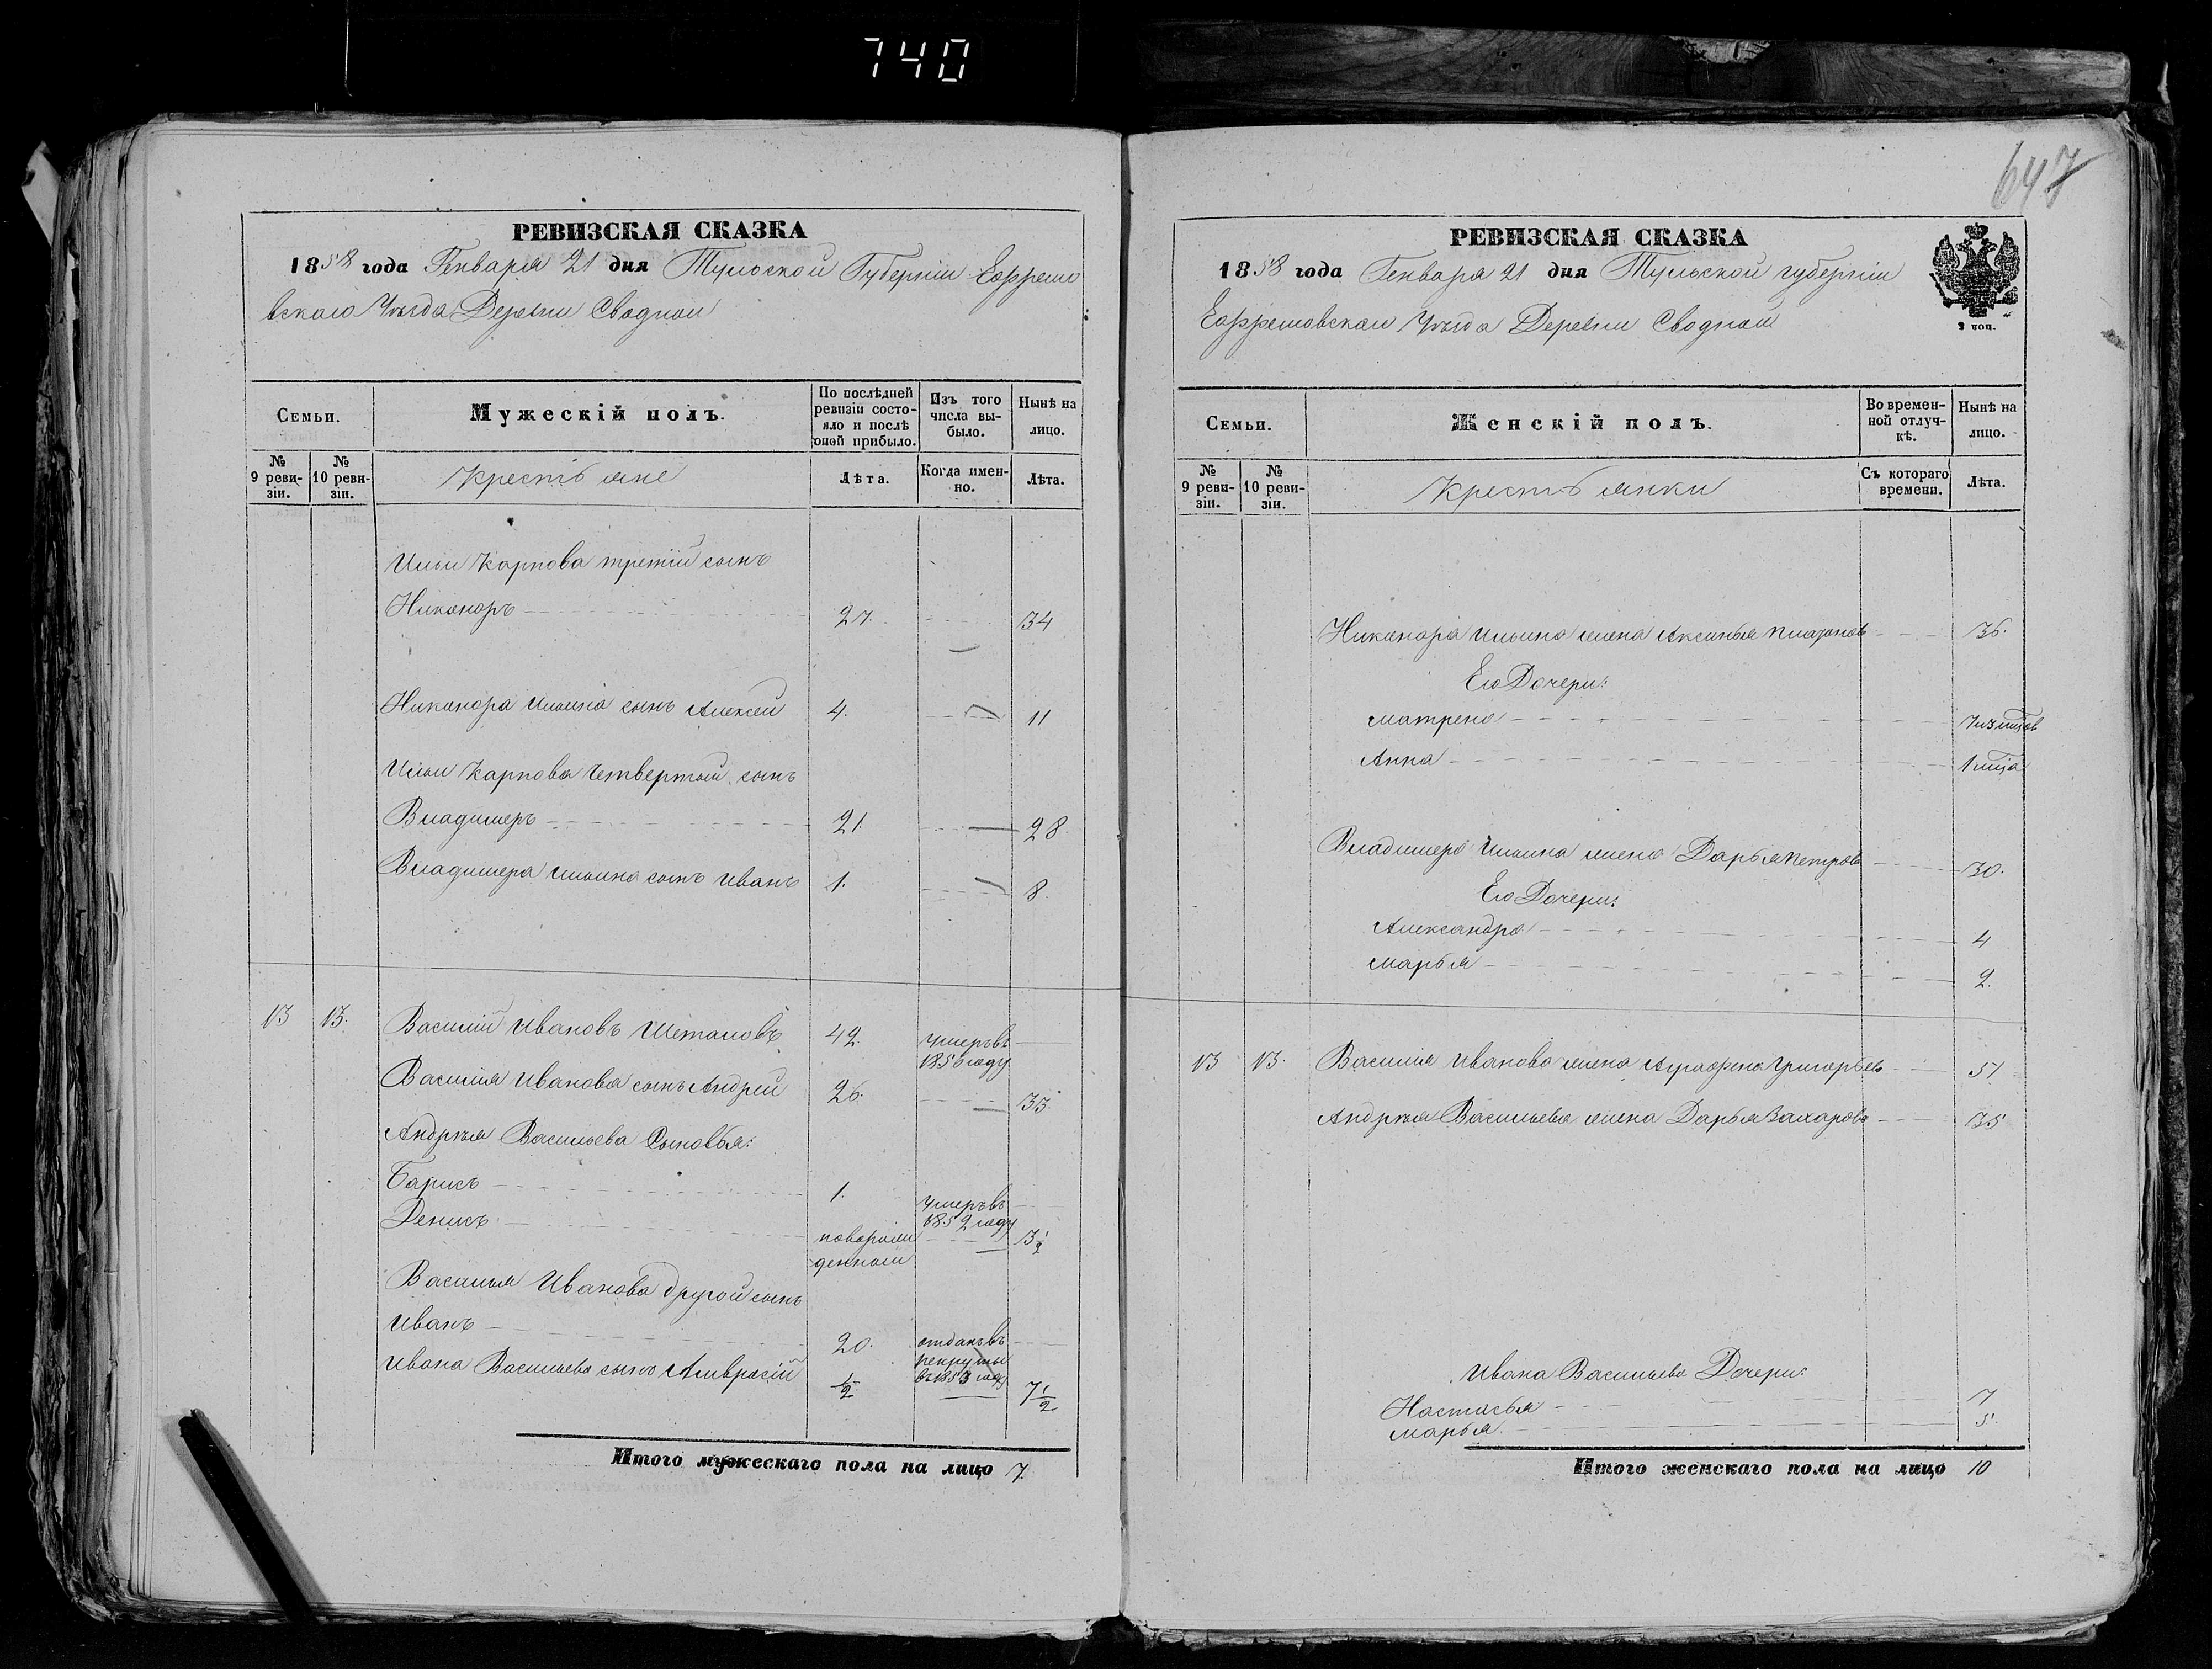 740
РЕВИЗСКАЯ СКАЗКА
1858 года Генваря 21 дня Тульской Губернiи Ефремо
вскаго Уѣзда Деревни Сводной
Семьи.
Мужескiй полъ.
По послѣдней ревизiи состояло и послѣ оной прибыло.
Изъ того числа выбыло.
Нынѣ на лицо.
№ 9 ревизiи.
№ 10 ревизiи.
Крестьяне
Лѣта.
Когда именно.
Лѣта.
Ильи Карпова третiй сынъ
Никаноръ 27. 34
Никанора Ильина сынъ Алексей 4. 11
Ильи Карпова четвертый сынъ
Владимеръ 21. 28.
Владимера Ильина сынъ Иванъ 1. 8.
13 13. Василiй Ивановъ 42. умеръ въ
1856 году
Василiя Иванова сынъ Андрей 26. 33.
Андрѣя Васильева Сыновья:
Барисъ 1. умеръ въ
1852 году
Денисъ новорож
денный 3 1/2
Василья Иванова другой сынъ
Иванъ 20. отданъ въ
рекруты
въ 1853 году
Ивана Васильева сынъ Амвросiй 1/2 7 1/2
Итого мужескаго пола на лицо 7.
647
РЕВИЗСКАЯ СКАЗКА
1858 года Генваря 21 дня Тульской губернiи
Ефремовскаго Уѣзда Деревни Сводной
2 коп.
Семьи.
Женскiй полъ.
Во временной отлучкѣ.
Нынѣ на лицо.
№ 9 ревизiи.
№ 10 ревизiи.
Крестьянки
Съ котораго времени.
Лѣта.
Никанора Ильина жена Аксинья Платонова 36.
Его Дочери:
Матрена
Анна
Владимера Ильина жена Дарья Петрова 30.
Его Дочери:
Александра 4
Марья 2.
13 13. Василiя Иванова жена Аграфена Григорьева 51
Андрѣя Васильева жена Дарья Захарова 35
Ивана Васильева Дочери:
Настасья 7
Марья 5.
Итого женскаго пола на лицо 10